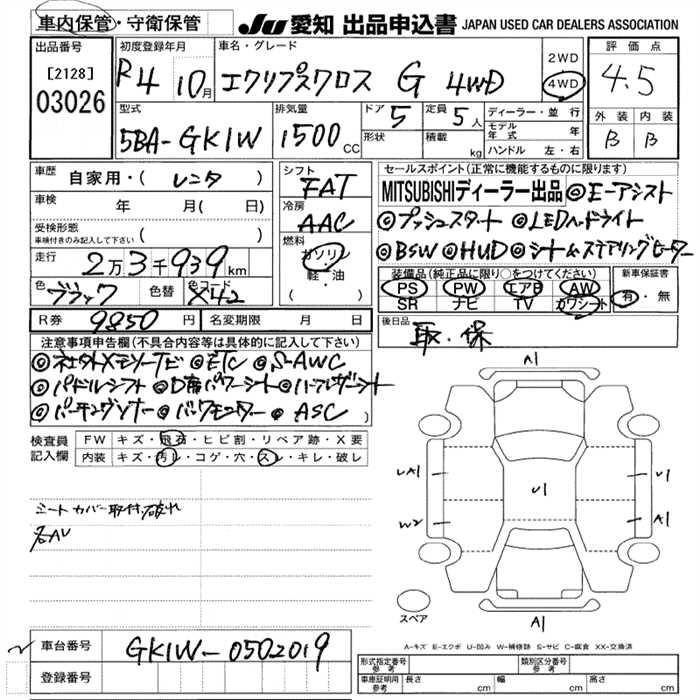 車内保管・守衛保管
JU 愛知 出品申込書 JAPAN USED CAR DEALERS ASSOCIATION
出品番号
[2128]
03026
初度登録年月
R4 10月
車名・グレード
エクリプスクロス G 4WD
2WD
4WD
評価点
4.5
外装 内装
B B
型式
5BA-GK1W
排気量
1500 CC
ドア 5
形状
定員 5人
積載 kg
ディーラー・並行
モデル年式 年
ハンドル 左・右
車歴
自家用・( レンタ )
車検 年 月( 日)
受検形態
車検付きのみ記入して下さい ( )
走行 2万3千939km
色 ブラック 色替 色コード X42
シフト
FAT
冷房
AAC
燃料
ガソリン
軽・油
( )
セールスポイント(正常に機能するものに限ります)
MITSUBISHIディーラー出品 ◎E-アシスト
◎プッシュスタート ◎LEDヘッドライト
◎BSW ◎HUD ◎シート&ステアリングヒーター
装備品(純正品に限り○をつけてください)
PS PW エアB AW
SR ナビ TV カワシート
新車保証書
有・無
R券 9850円 名変期限 月 日
後日品
取・保
注意事項申告欄(不具合内容等は具体的に記入して下さい)
◎社外Xモリーナビ ◎ETC ◎S-AWC
◎パドルシフト ◎D席パワーシート ◎ハーフレザーシート
◎パーキングソナー ◎バックモニター ◎ASC )
検査員記入欄
FW キズ・飛石・ヒビ割・リペア跡・X要
内装 キズ・汚レ・コゲ・穴・スレ・キレ・破レ
シートカバー取付、破れ
A1
UA1
U1
U1
W2
A1
A1
スペア
A-キズ E-エクボ U-凹み W-補修跡 S-サビ C-腐食 XX-交換済
車台番号 GK1W-0502019
登録番号
形式指定番号 参考 類別区分番号 参考
車庫証明用 参考 長さ cm 幅 cm 高さ cm